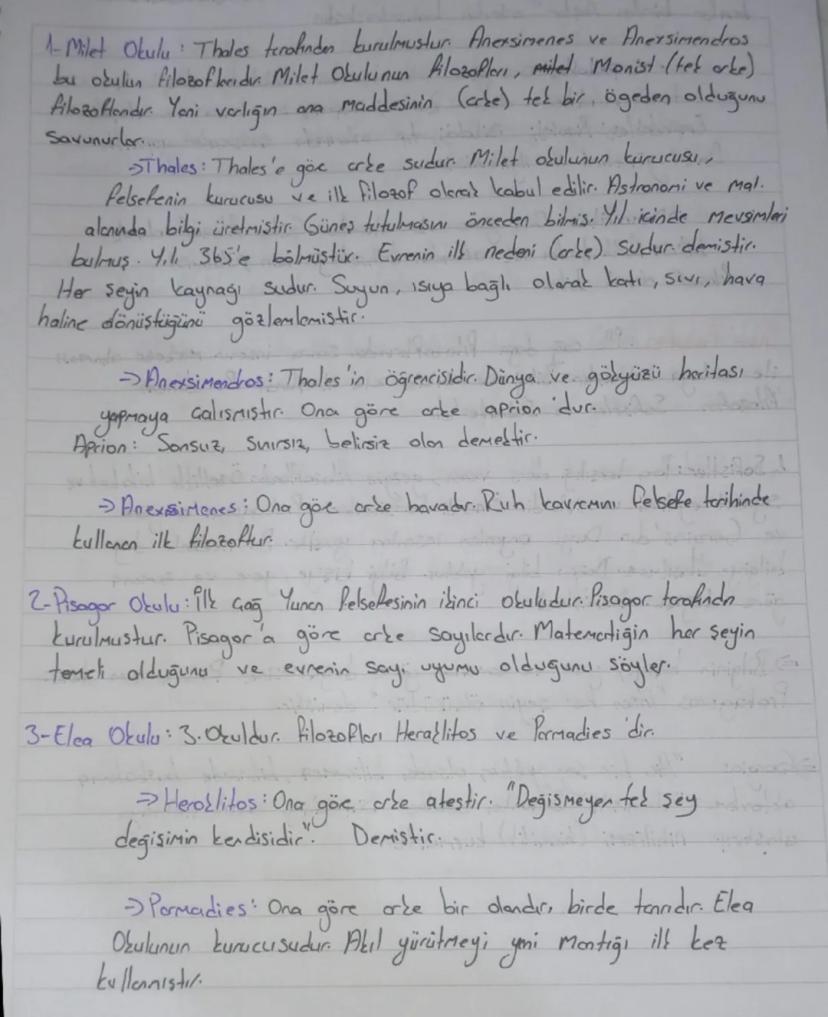 1-Milet Okulu: Thales tarafından kurulmuştur. Anexsimenes ve Anexsimendros
bu okulun filozoflarıdır. Milet Okulunun filozofları, Monist (tek arke)
filozoflarıdır. Yani varlığın ana maddesinin (arke) tek bir, ögeden olduğunu
Savunurlar...
→Thales: Thales'e göre arke sudur. Milet okulunun kurucusu,
felsefenin kurucusu ve ilk filozof olarak kabul edilir. Astronomi ve mat.
alanında bilgi üretmiştir. Güneş tutulmasını önceden bilmiş. Yıl içinde mevsimleri
bulmuş. Yılı 365'e bölmüştür. Evrenin ilk nedeni (arke) sudur demiştir.
Her şeyin kaynağı sudur. Suyun, ısıya bağlı olarak katı, sıvı, hava
haline dönüştüğünü gözlemlemiştir.
→Anexsimendros: Thales'in öğrencisidir. Dünya ve gökyüzü haritası
yapmaya çalışmıştır. Ona göre arke aprion'dur.
Aprion: Sonsuz, sınırsız, belirsiz olan demektir.
→Anexsimenes: Ona göre arke havadır. Ruh kavramını felsefe tarihinde
kullanan ilk filozoftur.
2-Pisagor Okulu: İlk çağ Yunan felsefesinin ikinci okuludur. Pisagor tarafında
kurulmuştur. Pisagor'a göre arke sayılardır. Matematiğin her şeyin
temeli olduğunu ve evrenin sayı uyumu olduğunu söyler.
3-Elea Okulu: 3. Okuldur. filozofları Heraklitos ve Parmadies'dir.
→Heraklitos: Ona göre arke ateştir. "Değişmeyen tek şey
değişimin kendisidir". Demiştir.
→Parmadies: Ona göre arke bir olandır, birde tanrıdır. Elea
Okulunun kurucusudur. Akıl yürütmeyi yani mantığı ilk kez
kullanmıştır.